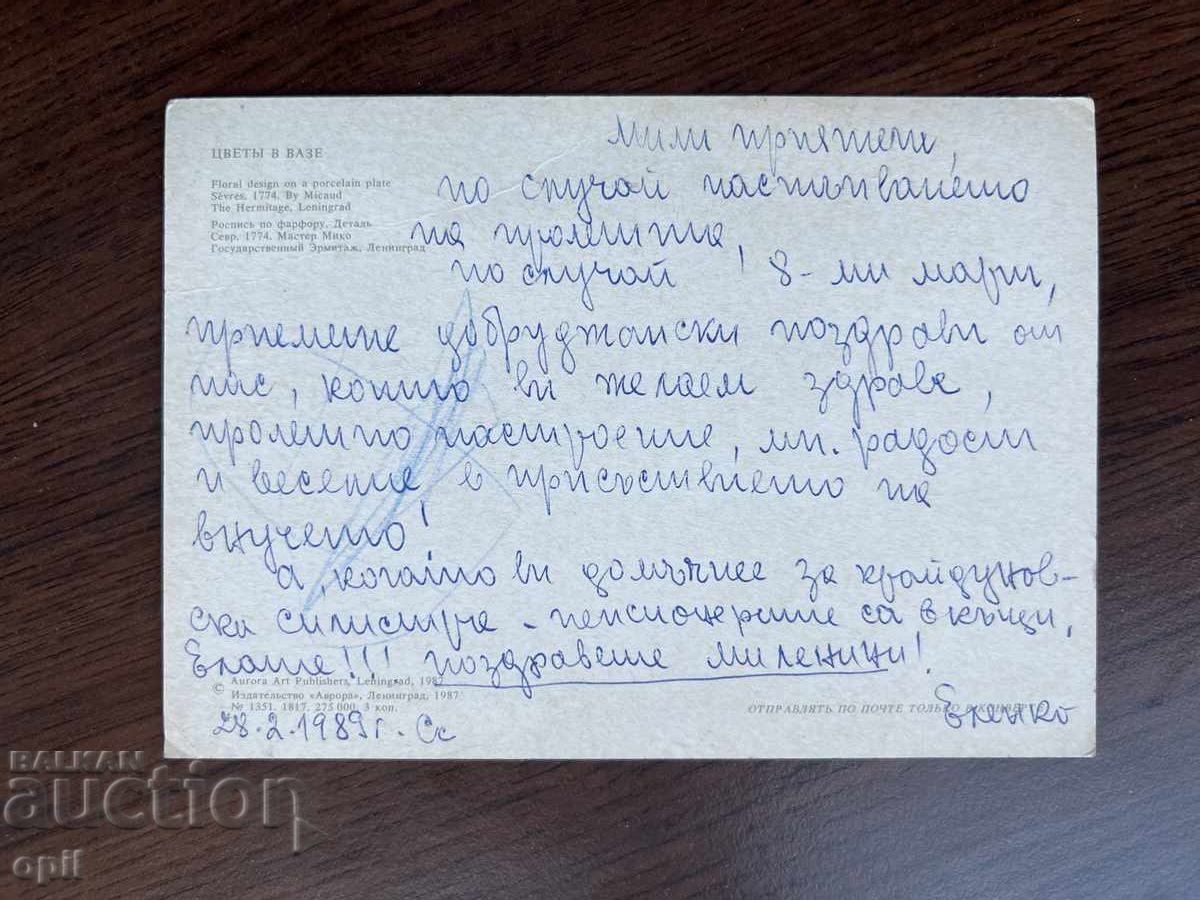 ЦВЕТЫ В ВАЗЕ
Floral design on a porcelain plate
Sèvres. 1774. By Micaud
The Hermitage, Leningrad
Роспись по фарфору. Деталь
Севр. 1774. Мастер Мико
Государственный Эрмитаж, Ленинград
Мили приятели,
по случай настъпването
на пролетта,
по случай 8-ми март,
приемете добруджански поздрави от
нас, които ви желаем здраве,
пролетно настроение, мн. радост
и веселие в присъствието на
внучето!
А, когато ви домъчнее за крайдунав-
ска Силистра - пенсионерите са вкъщи,
Елате!!! поздравете миленици!
© Aurora Art Publishers, Leningrad, 1987
Издательство «Аврора», Ленинград, 1987
№ 1351. 1817. 275 000. 3 коп.
ОТПРАВЛЯТЬ ПО ПОЧТЕ ТОЛЬКО В КОНВЕРТЕ
28.2.1989 г. Сс
Еленко
BALKAN
auction
opil